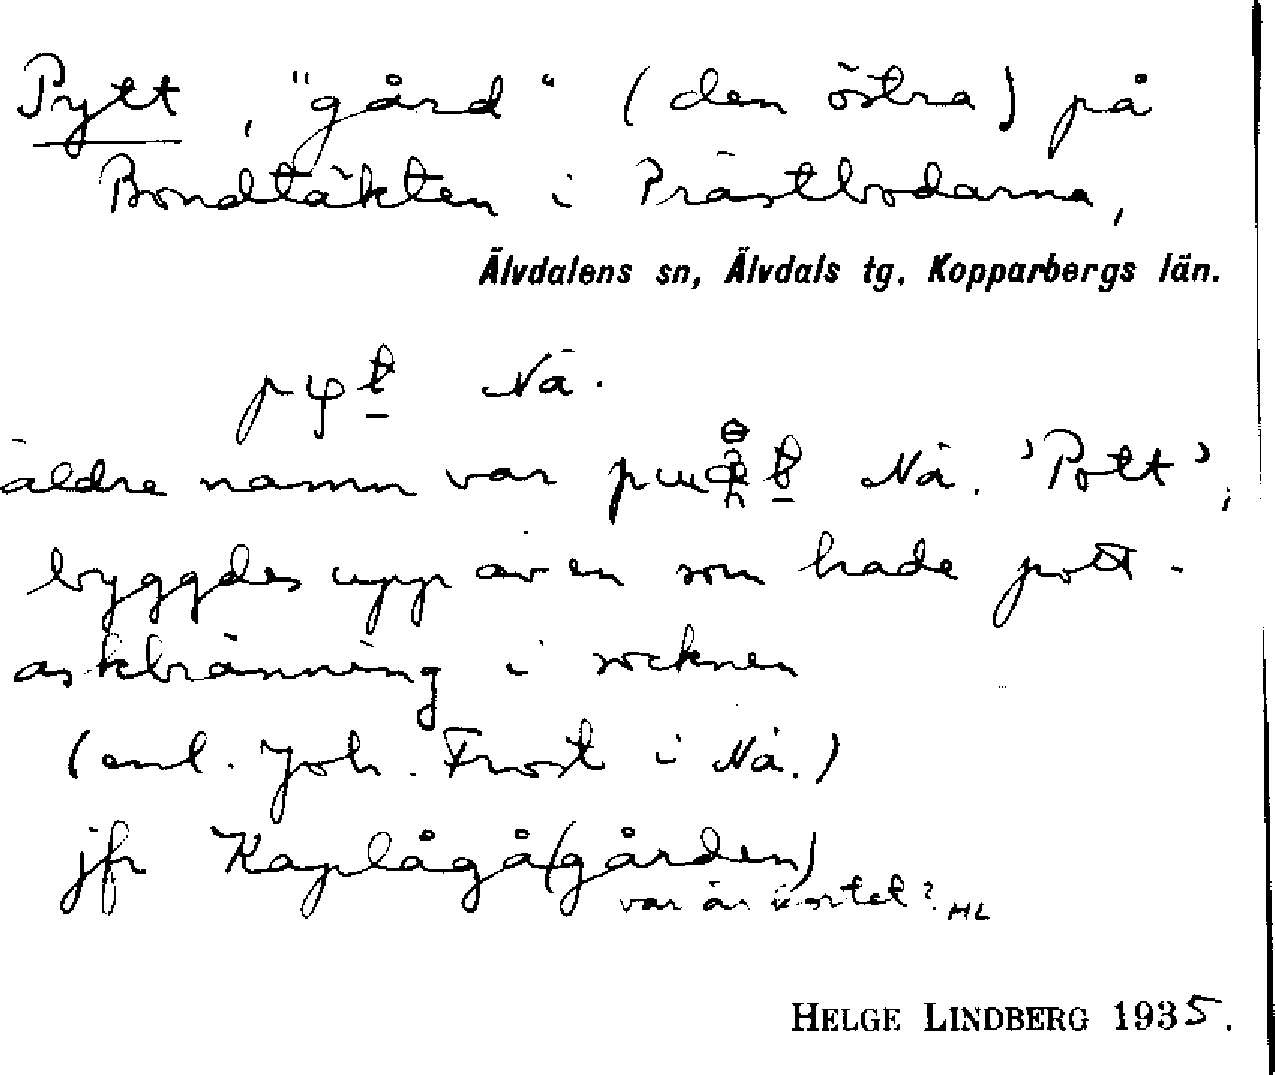 Pytt, "gård" (den östra) på
Bondtäkten i Prästbodarna,
Älvdalens sn, Älvdals tg, Kopparbergs län.
Nä.
äldre namn var Nä. 'Pott',
byggdes upp av en som hade pott-
askbränning i socknen
(enl. Joh. Frost i Nä.)
jfr Kaplågå(gården)
var är kortet? HL
HELGE LINDBERG 1935.